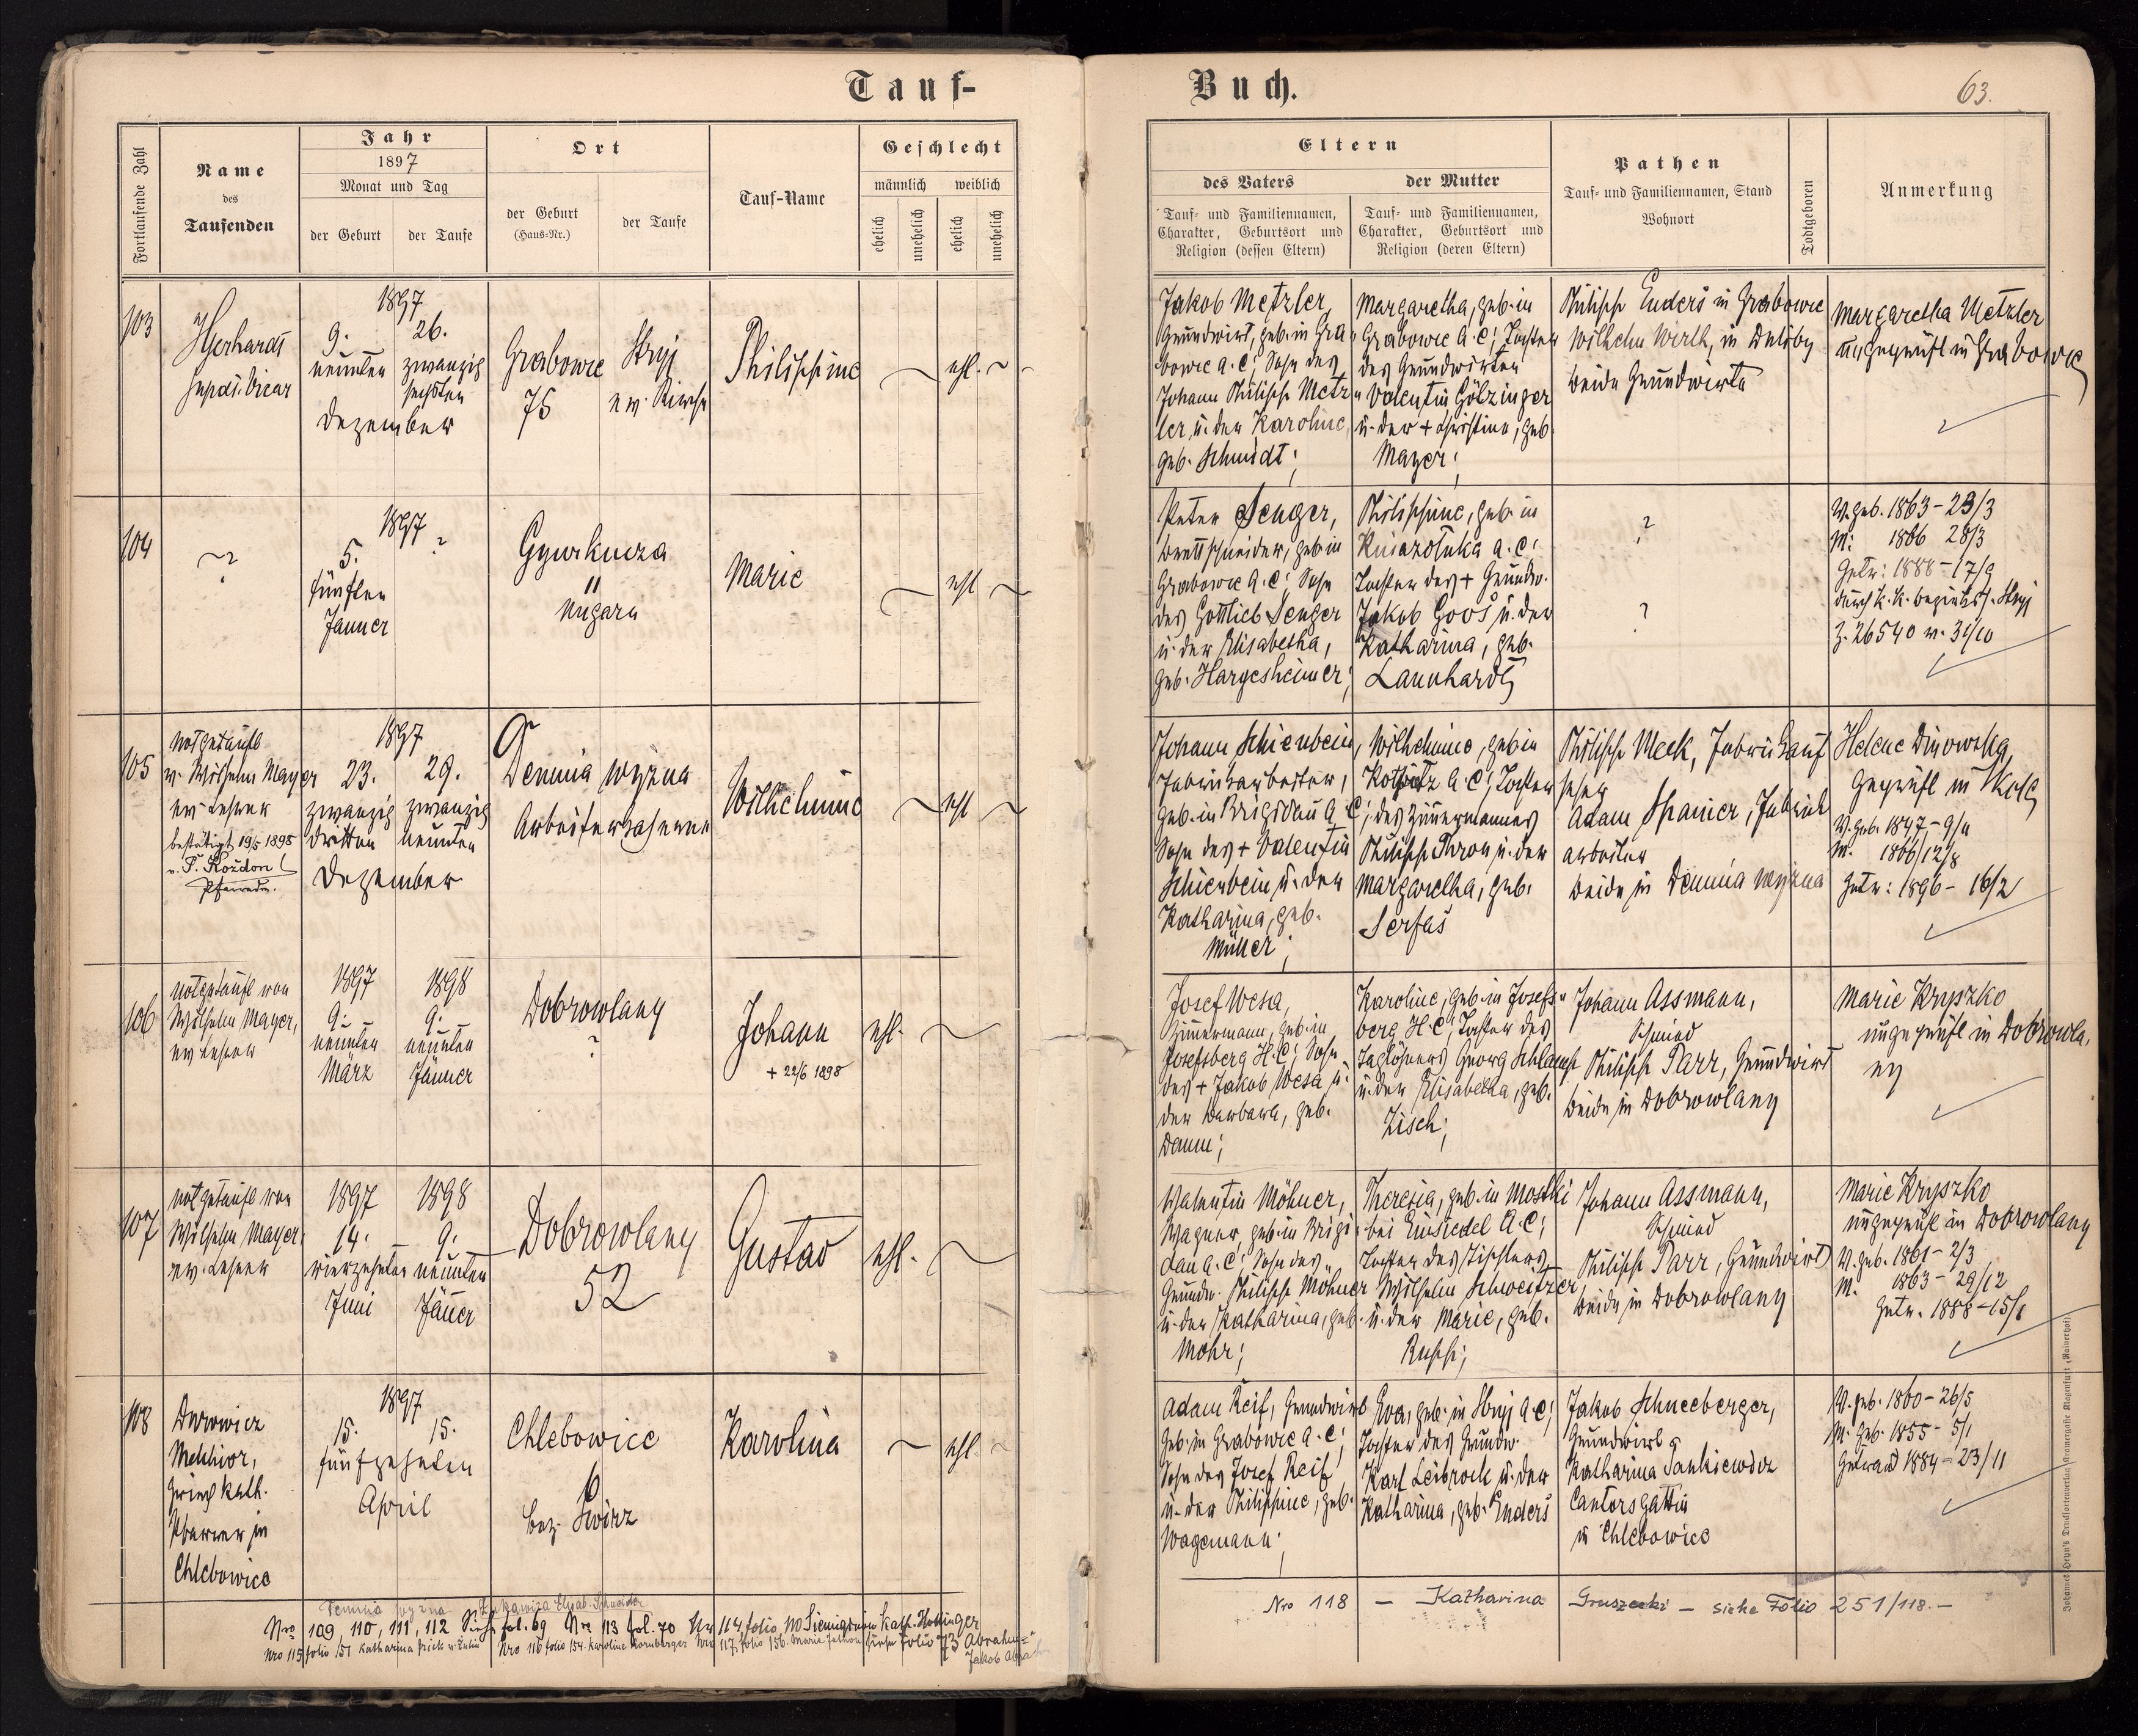 Tauf-
Buch.
63.
Fortlaufende Zahl
Name
des
Taufenden
Jahr
1897
Monat und Tag
der Geburt
der Taufe
Ort
der Geburt
(Haus-Nr.)
der Taufe
Tauf-Name
Geschlecht
männlich
weiblich
ehelich
unehelich
ehelich
unehelich
Eltern
des Vaters
Tauf- und Familiennamen,
Charakter, Geburtsort und
Religion (dessen Eltern)
der Mutter
Tauf- und Familiennamen,
Charakter, Geburtsort und
Religion (deren Eltern)
Pathen
Tauf- und Familiennamen, Stand
Wohnort
Todtgeboren
Anmerkung
103
Vicar
1897
9.
neunten
26.
zwanzig
sechsten
Dezember
Grabowce
75
Stryj
ev. Kirche
Philippine
ehl.
Jakob Metzler,
Grundwirt, geb. in Gra-
bowce A.C; Sohn des
Johann Philipp Metz-
ler u. der Karoline,
geb. Schmidt;
Margaretha, geb. in
Grabowce A.C; Tochter
des Grundwirten
Valentin Gölzinger
u. der + Christine, geb.
Mayer;
Philipp Enders in Grabowce
Wilhelm Werth, in Duliby
beide Grundwirte
Margaretha Metzler
ungeprüft in Grabowce
104
?
1897
5.
fünften
Jänner
?
Gyurkucza
11
Ungarn
Marie
ehl
Peter Senger,
Brettschneider, geb in
Grabowce A.C; Sohn
des Gottlieb Senger
u. der Elisabetha,
geb. Hargesheimer;
Philippine, geb. in
Kniazoluka A.C;
Tochter des + Grundw.
Jakob Goos u. der
Katharina, geb.
Launhardt
?
?
V. geb. 1863 - 23/3
M: 1866 28/3
Getr: 1888 - 17/9
durch k. k. Bezirksh. Stryj
Z. 26540 v. 31/10
105
Notgetauft
v. Wilhelm Mayer
ev. Lehrer
bestätigt 19/5 1898
v. P. Kozdon
Pfarradm.
1897
23.
zwanzig
dritten
29.
zwanzig
neunten
Dezember
Demnia wyzna
Arbeiterkaserne
Wilhelmine
ehl
Johann Schienbein,
Fabriksarbeiter,
geb. in Brigidau A.C;
Sohn des + Valentin
Schienbein u. der
Katharina, geb.
Müller;
Wilhelmine, geb in
A.C; Tochter
des Zimmermannes
Philipp Thron u. der
Margaretha, geb.
Serfas
Philipp Meek, Fabriksauf
seher
Adam Spanier, Fabrick
arbeiter
beide in Demnia wyzna
Helene
Geprüft in Skole
V. geb. 1847 - 9/11
M. 1866 12/8
Getr: 1896 - 16/2
106
Notgetauft von
Wilhelm Mayer,
ev Lehrer
1897
9.
neunten
März
1898
9.
neunten
Jänner
Dobrowlany
?
Johann
+ 22/6 1898
ehl.
Josef Wesa,
Zimmermann, geb. in
Josefsberg H.C; Sohn
des + Jakob Wesa u.
der Barbara, geb.
Damm;
Karoline, geb. in Josefs-
berg H.C; Tochter des
Taglöhners Georg Schlamp
u. der Elisabetha, geb.
Zisch;
Johann Assmann,
Schmied
Philipp Parr, Grundwirt
beide in Dobrowlany
Marie Kryszko
ungeprüft in Dobrowla,
ny
107
Notgetauft von
Wilhelm Mayer
ev. Lehrer
1897
14.
vierzehnten
Juni
1898
9.
neunten
Jänner
Dobrowlany
52
Gustav
ehl.
Valentin Möhner,
Wagner, geb. in Brigi-
dau A.C; Sohn des
Grundw. Philipp Möhner
u. der Katharina, geb.
Mohr;
Theresia, geb. in Mostki
bei Einsiedel A.C;
Tochter des Tischlers
Wilhelm Schweitzer
u. der Marie, geb.
Rupp;
Johann Assmann,
Schmied
Philipp Parr, Grundwirt
beide in Dobrowlany
Marie Kryszko
ungeprüft in Dobrowlany
V. geb. 1861 - 2/3
M. 1863 - 29/12
Getr. 1888 - 15/1
108
Melchior,
griech kath.
Pfarrer in
Chlebowice
1897
15.
15.
fünfzehnten
April
Chlebowice
6
bez. Swirz
Karolina
ehl.
Adam Reif, Grundwirt
geb. in Grabowce A.C;
Sohn des Josef Reif
u. der Philippine, geb.
Wagemann;
Eva, geb. in Stryj A.C;
Tochter des Grundw.
Karl Leibrock u. der
Katharina, geb. Enders
Jakob Schneeberger,
Grundwirt
Katharina Pankiewicz
Cantorsgattin
in Chlebowice
V. geb. 1860 - 26/5
M. geb. 1855 - 5/1
Getraut 1884 - 23/11
Demnia wyzna
Nro 109, 110, 111, 112 Siehe fol. 69 Nro 113 fol. 70 Nro 114 folio, Kath. Hollinger
Nro 115 folio 151 Katharina Frick Nro 116 folio 154. Karoline Nro 117. folio 156. Marie siehe Folio 73 Abraham
Jakob
Nro 118 - Katharina Gruszecki - siehe Folio 251/118.-